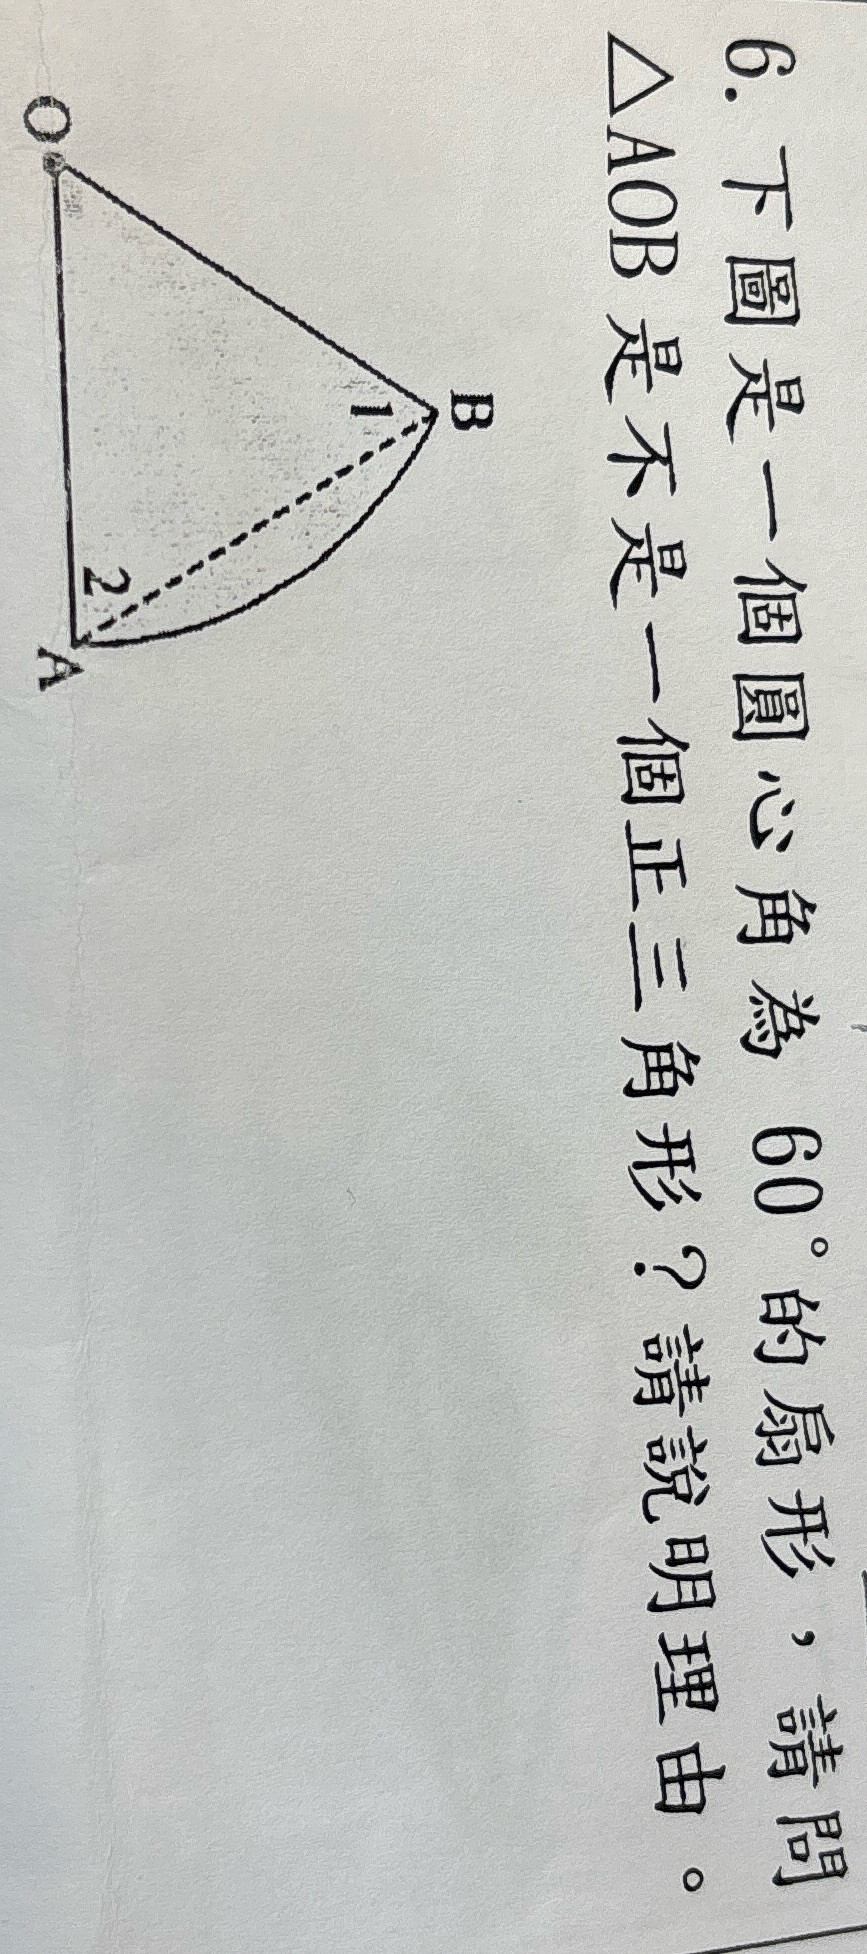 6. 下圖是一個圓心角為 60°的扇形，請問
△AOB 是不是一個正三角形？請說明理由。
B
1
2
O
A